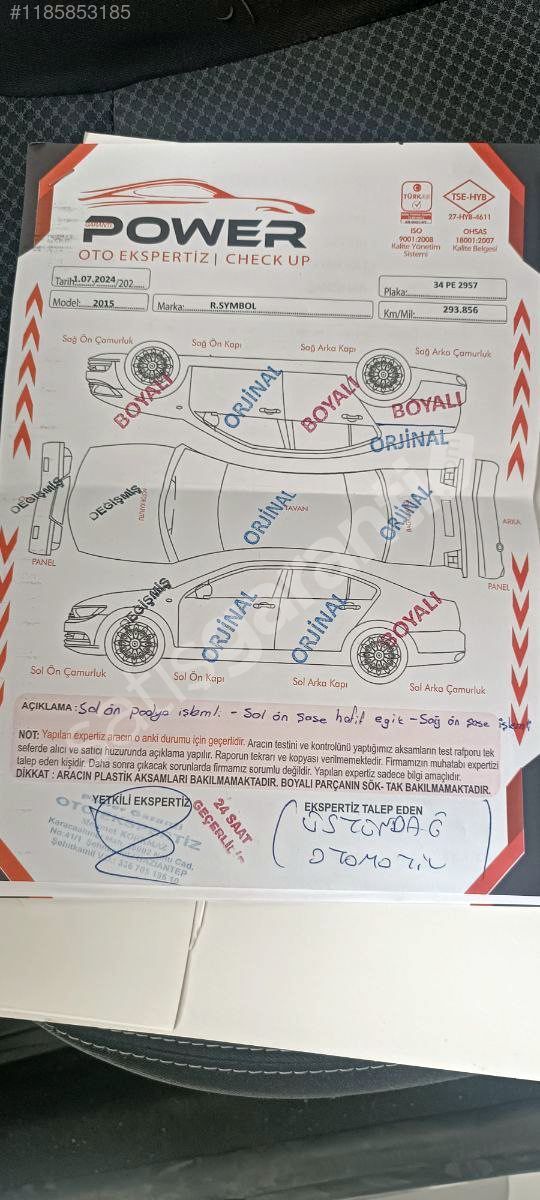 #1185853185
GARANTİ
POWER
OTO EKSPERTİZ | CHECK UP
TÜRKAK
TSE-HYB
27-HYB-4611
ISO
9001:2008
Kalite Yönetim
Sistemi
OHSAS
18001:2007
Kalite Belgesi
Tarih 1.07.2024 /202
Plaka: 34 PE 2957
Model: 2015 Marka: R.SYMBOL Km/Mil: 293.856
Sağ Ön Çamurluk Sağ Ön Kapı Sağ Arka Kapı Sağ Arka Çamurluk
BOYALI ORJİNAL BOYALI BOYALI
ORJİNAL
DEĞİŞMİŞ DEĞİŞMİŞ ORJİNAL TAVAN ORJİNAL ARKA
PANEL PANEL
DEĞİŞMİŞ ORJİNAL ORJİNAL BOYALI
Sol Ön Çamurluk Sol Ön Kapı Sol Arka Kapı Sol Arka Çamurluk
satışgaranti.com
AÇIKLAMA : Sol ön podye işlemli - Sol ön şase hafif egik - Sağ ön şase işlemli
NOT: Yapılan expertiz aracın o anki durumu için geçerlidir. Aracın testini ve kontrolünü yaptığımız aksamların test rafporu tek
seferde alıcı ve satıcı huzurunda açıklama yapılır. Raporun tekrarı ve kopyası verilmemektedir. Firmamızın muhatabı expertizi
talep eden kişidir. Daha sonra çıkacak sorunlarda firmamız sorumlu değildir. Yapılan expertiz sadece bilgi amaçlıdır.
DİKKAT : ARACIN PLASTİK AKSAMLARI BAKILMAMAKTADIR. BOYALI PARÇANIN SÖK- TAK BAKILMAMAKTADIR.
YETKİLİ EKSPERTİZ
EKSPERTİZ TALEP EDEN
24 SAAT
GEÇERLİLİ
OTO EKSPERTİZ
GAZİANTEP
ÜSTÜNDAĞ
OTOMOTİV